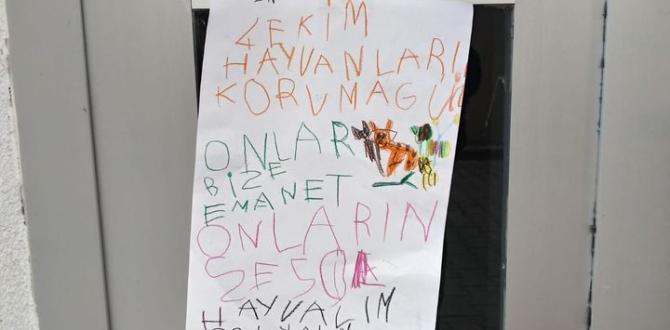 4EKİM
HAYVANLARI
KORUMAGÜ
ONLAR
BİZE
EMANET
ONLARIN
SESİ
HAYVALIM